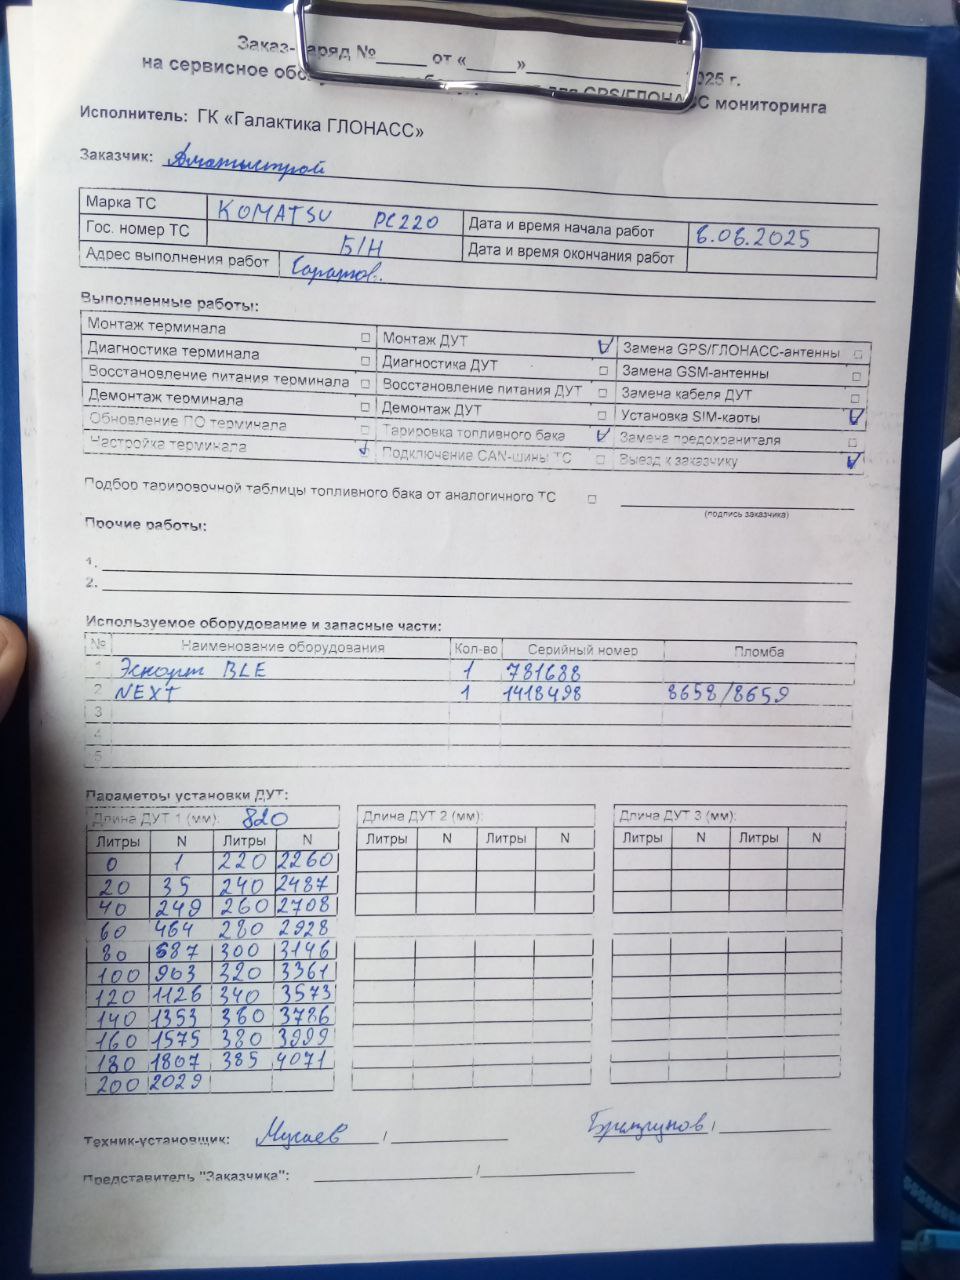 Заказ-наряд №_____ от «_____»_______________ 2025 г.
на сервисное GPS/ГЛОНАСС мониторинга
Исполнитель: ГК «Галактика ГЛОНАСС»
Заказчик:
Марка ТС KOMATSU PC220 Дата и время начала работ 6.06.2025
Гос. номер ТС Б/Н Дата и время окончания работ
Адрес выполнения работ Саратов.
Выполненные работы:
Монтаж терминала □ Монтаж ДУТ V Замена GPS/ГЛОНАСС-антенны □
Диагностика терминала □ Диагностика ДУТ □ Замена GSM-антенны □
Восстановление питания терминала □ Восстановление питания ДУТ □ Замена кабеля ДУТ □
Демонтаж терминала □ Демонтаж ДУТ □ Установка SIM-карты V
Обновление ПО терминала □ Тарировка топливного бака V Замена предохранителя □
Настройка терминала V Подключение CAN-шины ТС □ Выезд к заказчику V
Подбор тарировочной таблицы топливного бака от аналогичного ТС □
(подпись заказчика)
Прочие работы:
1.
2.
Используемое оборудование и запасные части:
№ Наименование оборудования Кол-во Серийный номер Пломба
1 Эскорт BLE 1 781688
2 NEXT 1 1418498 8658/8659
3
4
5
Параметры установки ДУТ:
Длина ДУТ 1 (мм): 820 Длина ДУТ 2 (мм): Длина ДУТ 3 (мм):
Литры N Литры N Литры N Литры N Литры N Литры N
0 1 220 2260
20 35 240 2487
40 249 260 2708
60 464 280 2928
80 687 300 3146
100 903 320 3361
120 1126 340 3573
140 1353 360 3786
160 1575 380 3999
180 1807 385 4071
200 2029
Техник-установщик: Мусаев /
Представитель "Заказчика": /